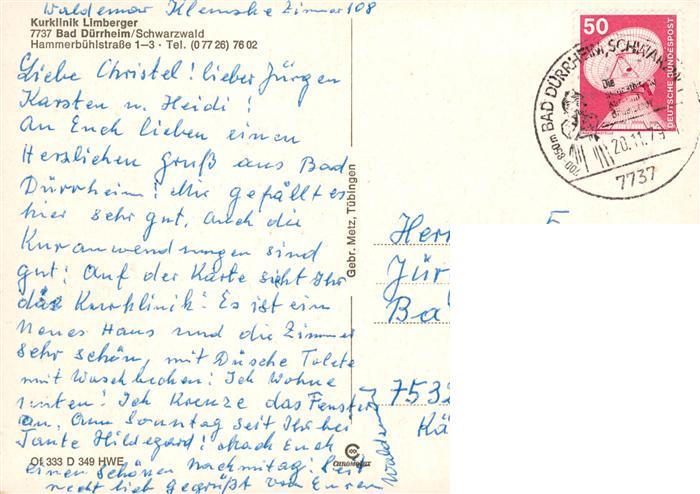 Waldemar Klemske Zimmer 108
Kurklinik Limberger
7737 Bad Dürrheim/Schwarzwald
Hammerbühlstraße 1–3 · Tel. (0 77 26) 76 02
Liebe Christel! lieber Jürgen
Karsten u. Heidi!
An Euch lieben einen
Herzlichen Gruß aus Bad
Dürrheim! Mir gefällt es
hier sehr gut, auch die
Kuranwendungen sind
gut! Auf der Karte sieht Ihr
das Kurklinik! Es ist ein
Neues Haus und die Zimmer
sehr schön, mit Dusche Tolete
mit Waschbecken! Ich Wohne
unten! Ich Kreuze das Fenster
an. Am Sonntag seit Ihr bei
Tante Hildegard! Mach Euch
einen schönen Nachmitag! Seit
recht lieb gegrüßt von Euren
Waldemar
Of 333 D 349 HWE
Gebr. Metz, Tübingen
CHROMOLUX
50
DEUTSCHE BUNDESPOST
BAD DÜRRHEIM, SCHWARZW
700-850m
20.11.79
7737
Herr
Jür
Ba
7532
Kä